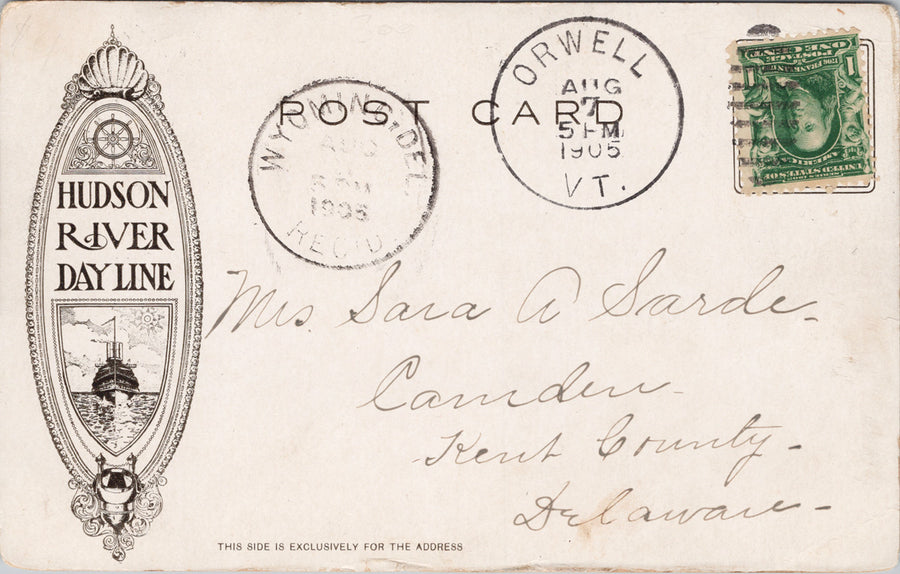 HUDSON
RIVER
DAY LINE
POST CARD
WYOMING, DEL.
AUG
5 PM
1905
REC'D.
ORWELL
AUG
7
5 PM
1905
VT.
POSTAGE
ONE CENT
1 1
UNITED STATES OF
AMERICA
Mrs. Sara A Sarde.
Camden.
Kent County.
Delaware.
THIS SIDE IS EXCLUSIVELY FOR THE ADDRESS